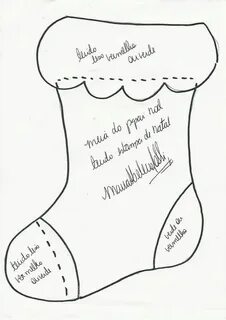 tecido
liso vermelho
ou verde
meia do papai noel
tecido estampa de natal
tecido liso
vermelho
ou verde
verde ou
vermelho